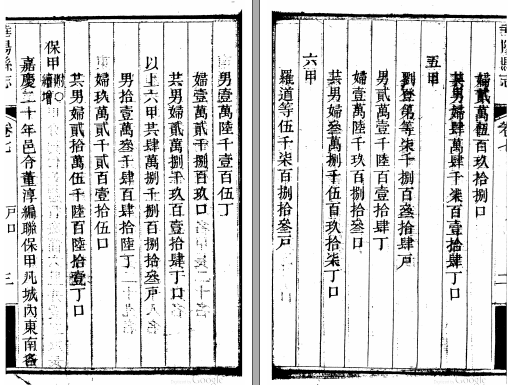 華陽縣志
卷七
二
婦貳萬伍百玖拾捌口
共男婦肆萬千柒百壹拾肆丁口
五甲
劉登第等柒千捌百叁拾肆戶
男貳萬壹千陸百肆拾肆丁
婦壹萬壹千玖百伍拾叁口
共男婦叁萬叁千伍百玖拾柒丁口
六甲
羅道等伍千柒百捌拾叁戶
男壹萬陸千壹百伍丁
婦壹萬貳千捌百玖口
共男婦貳萬捌千玖百壹拾肆丁口
以上六甲共肆萬捌千捌百捌拾叁戶
男拾壹萬叁千肆百肆拾陸丁
婦玖萬貳千貳百壹拾伍口
共男婦貳拾萬伍千陸百陸拾壹丁口
保甲 附○續增
嘉慶二十年邑令董淳編聯保甲凡城內東南各
華陽縣志
卷七
戶口
三
Google
Google